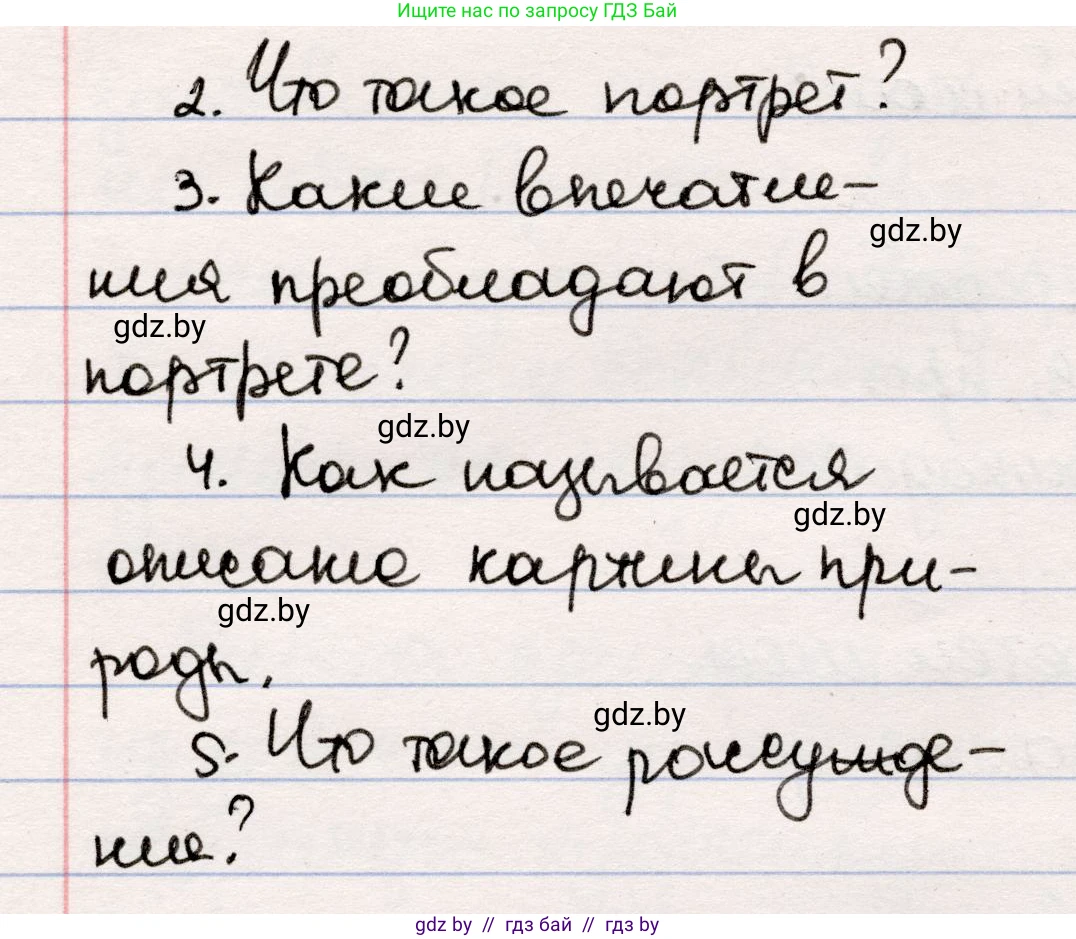 Ищите нас по запросу ГДЗ Бай
2. Что такое портрет?
3. Какие впечатле-
gdz.by
ния преобладают в
gdz.by
портрете?
gdz.by
4. Как называется
gdz.by
описание картины при-
gdz.by
роды.
gdz.by
5. Что такое рассужде-
ние?
gdz by // гдз бай // гдз by